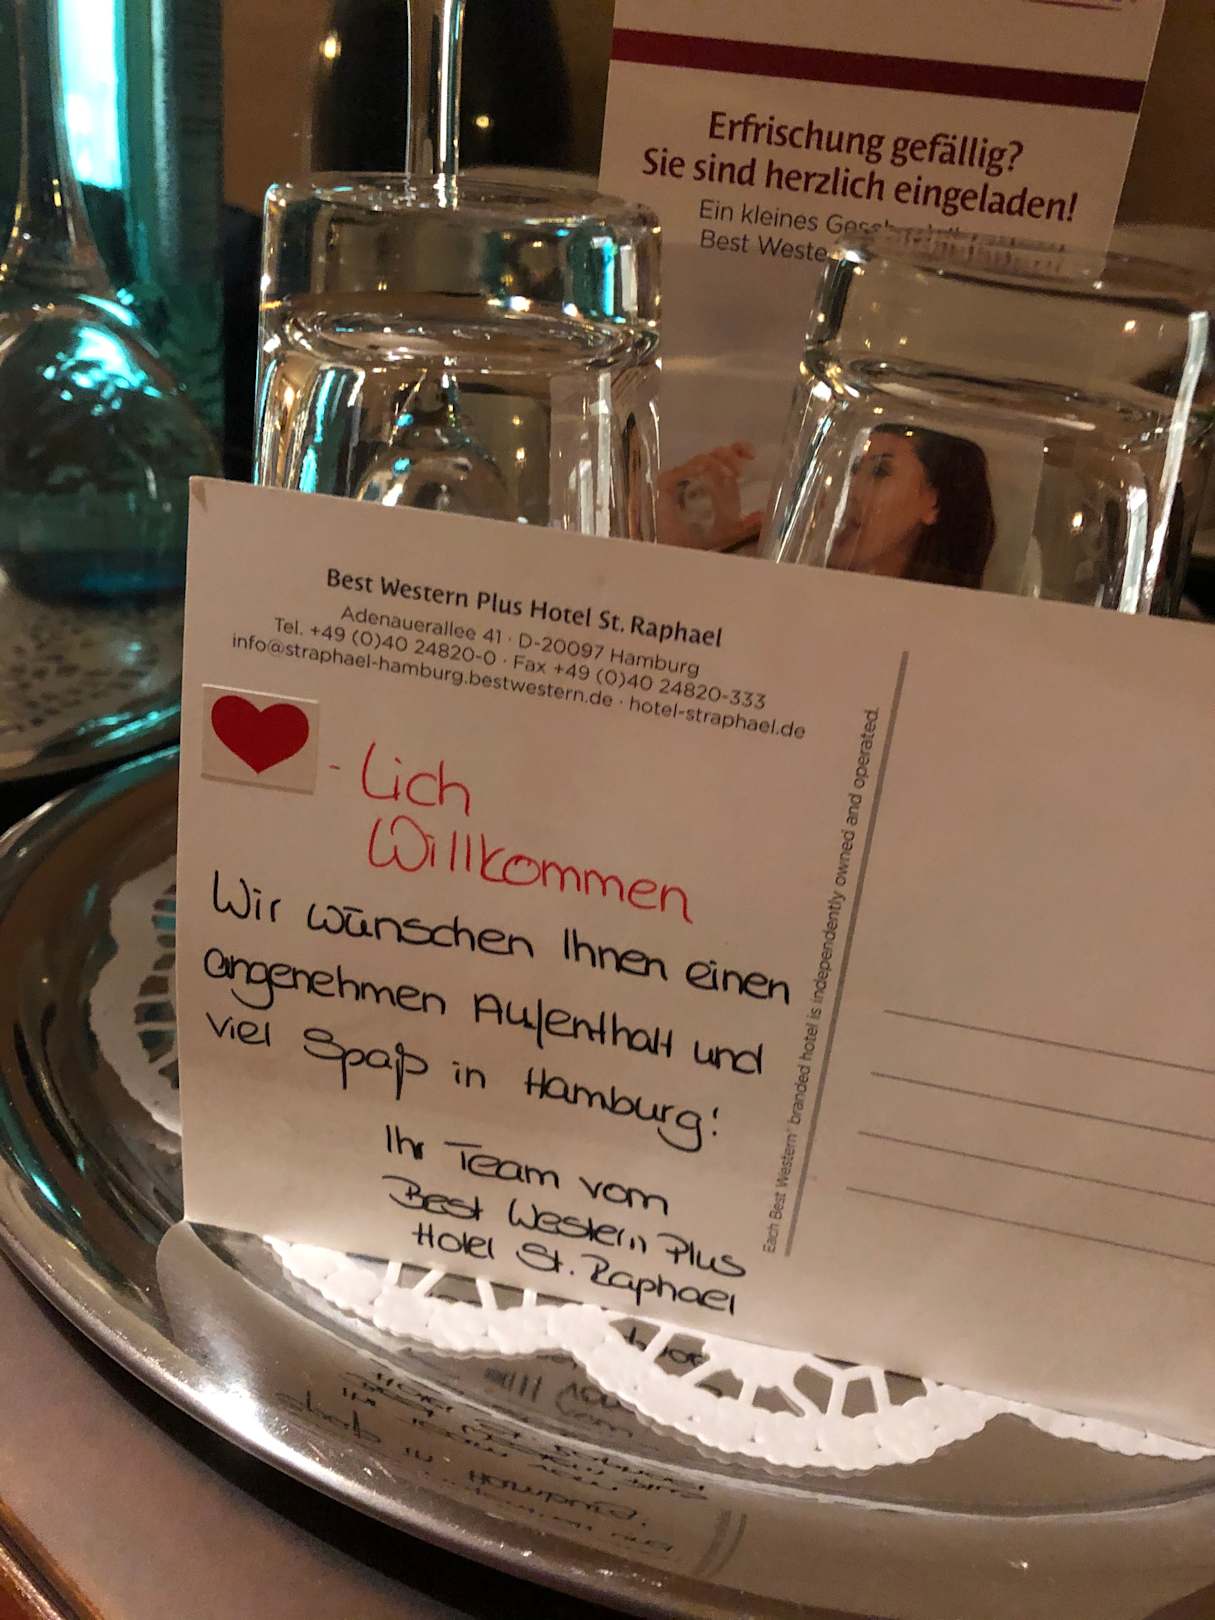 Erfrischung gefällig?
Sie sind herzlich eingeladen!
Ein kleines
Best
Best Western Plus Hotel St. Raphael
Adenauerallee 41 · D-20097 Hamburg
Tel. +49 (0)40 24820-0 · Fax +49 (0)40 24820-333
info@straphael-hamburg.bestwestern.de · hotel-straphael.de
- Lich
Willkommen
Wir wünschen Ihnen einen
angenehmen Aufenthalt und
viel Spaß in Hamburg!
Ihr Team vom
Best Western Plus
Hotel St. Raphael
Each Best Western® branded hotel is independently owned and operated.